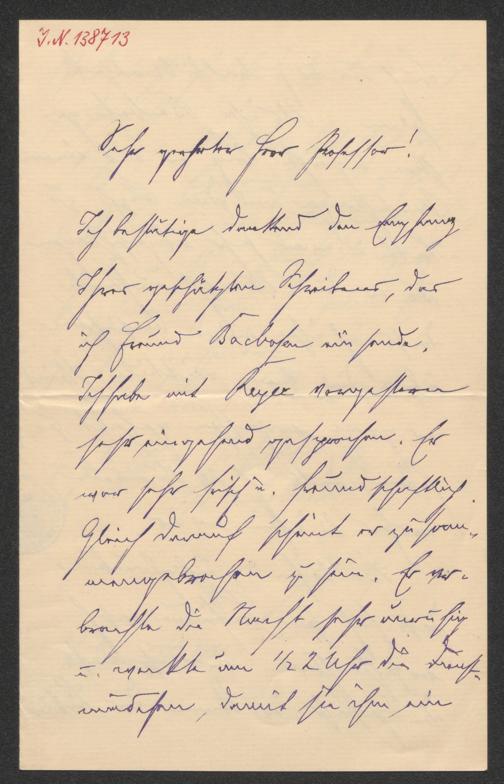 J.N. 138713
Sehr geehrter Herr Professor!
Ich bestätige dankend den Empfang
Ihres geschätzten Schreibens, das
ich Freund sende.
Ich habe mit Reyer vorgestern
sehr eingehend gesprochen. Er
war sehr frisch u. freundschaftlich.
Gleich darauf scheint er zusam-
mengebrochen zu sein. Er ver-
brachte die Nacht sehr unruhig
u. weckte um 1/2 2 Uhr die Dienst-
mädchen, damit sie ihm ein